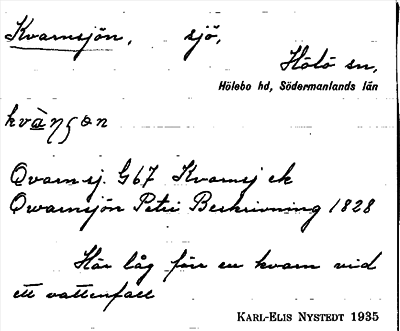 Kvarnsjön, sjö,
Hölö sn,
Hölebo hd, Södermanlands län
Qvarnsj. G67 Kvarnsj ek
Qwarnsjön Petri Beskrivning 1828
Här låg förr en kvarn vid
ett vattenfall
KARL-ELIS NYSTEDT 1935